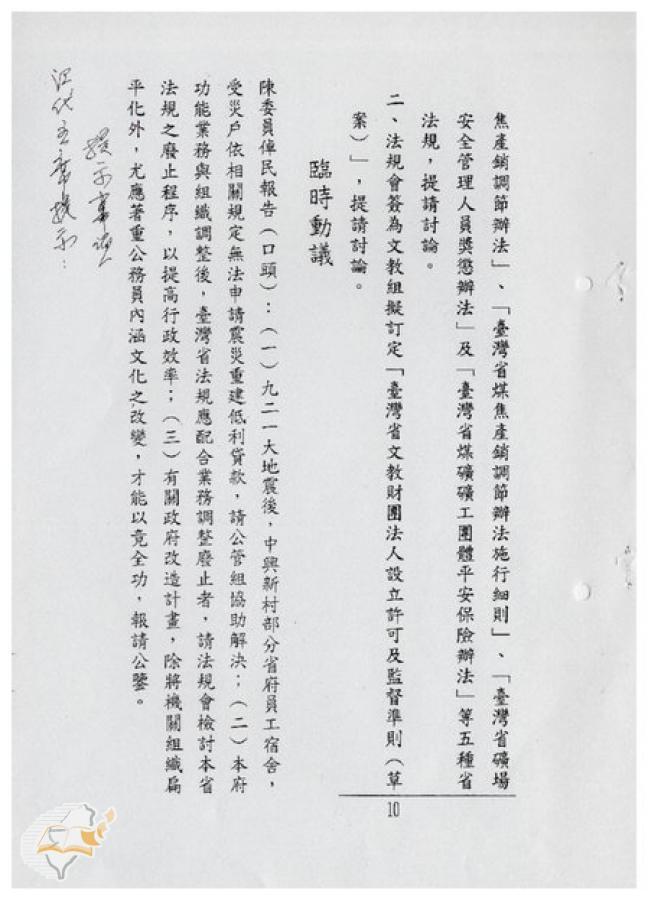 焦產銷調節辦法」、「臺灣省煤焦產銷調節辦法施行細則」、「臺灣省礦場
安全管理人員獎懲辦法」及「臺灣省煤礦礦工團體平安保險辦法」等五種省
法規，提請討論。
二、法規會簽為文教組擬訂定「臺灣省文教財團法人設立許可及監督準則（草
案）」，提請討論。
臨時動議
陳委員倬民報告（口頭）：（一）九二一大地震後，中興新村部分省府員工宿舍，
受災戶依相關規定無法申請震災重建低利貸款，請公管組協助解決；（二）本府
功能業務與組織調整後，臺灣省法規應配合業務調整廢止者，請法規會檢討本省
法規之廢止程序，以提高行政效率；（三）有關政府改造計畫，除將機關組織扁
平化外，尤應著重公務員內涵文化之改變，才能以竟全功，報請公鑒。
提示事項
江代主席提示：
10